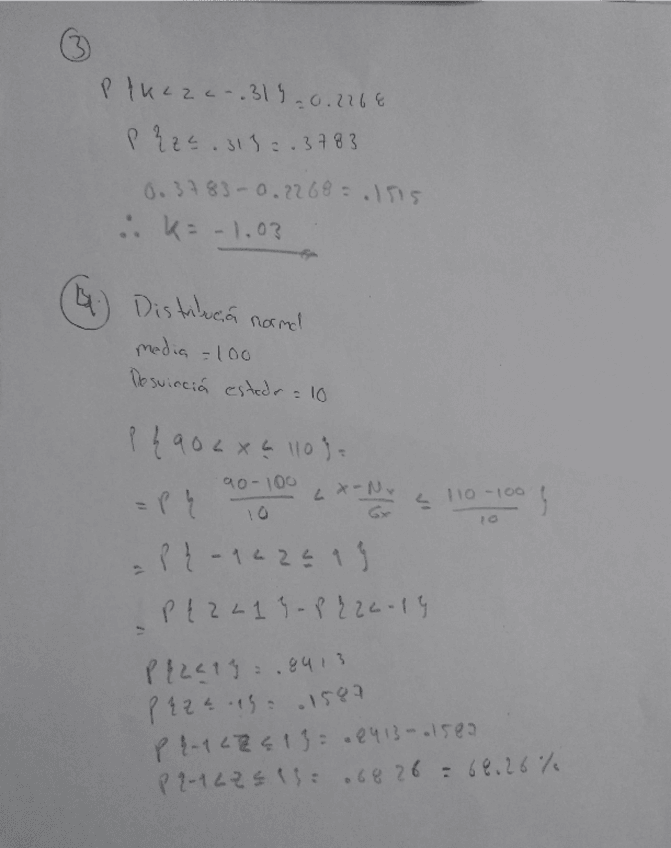 3
P{k<z<-.31}=0.2268
P{z≤.31}=.3783
0.3783-0.2268=.1515
∴ k=-1.03
4. Distribución normal
media =100
Desviación estadr =10
P{90<x≤110}=
=P{ 90-100/10 < x-Nx/Gx ≤ 110-100/10 }
=P{-1<z≤1}
=P{z<1}-P{z<-1}
P{z≤1}=.8413
P{z≤-1}=.1587
P{-1<z≤1}=.8413-.1587
P{-1<z≤1}=.6826=68.26%